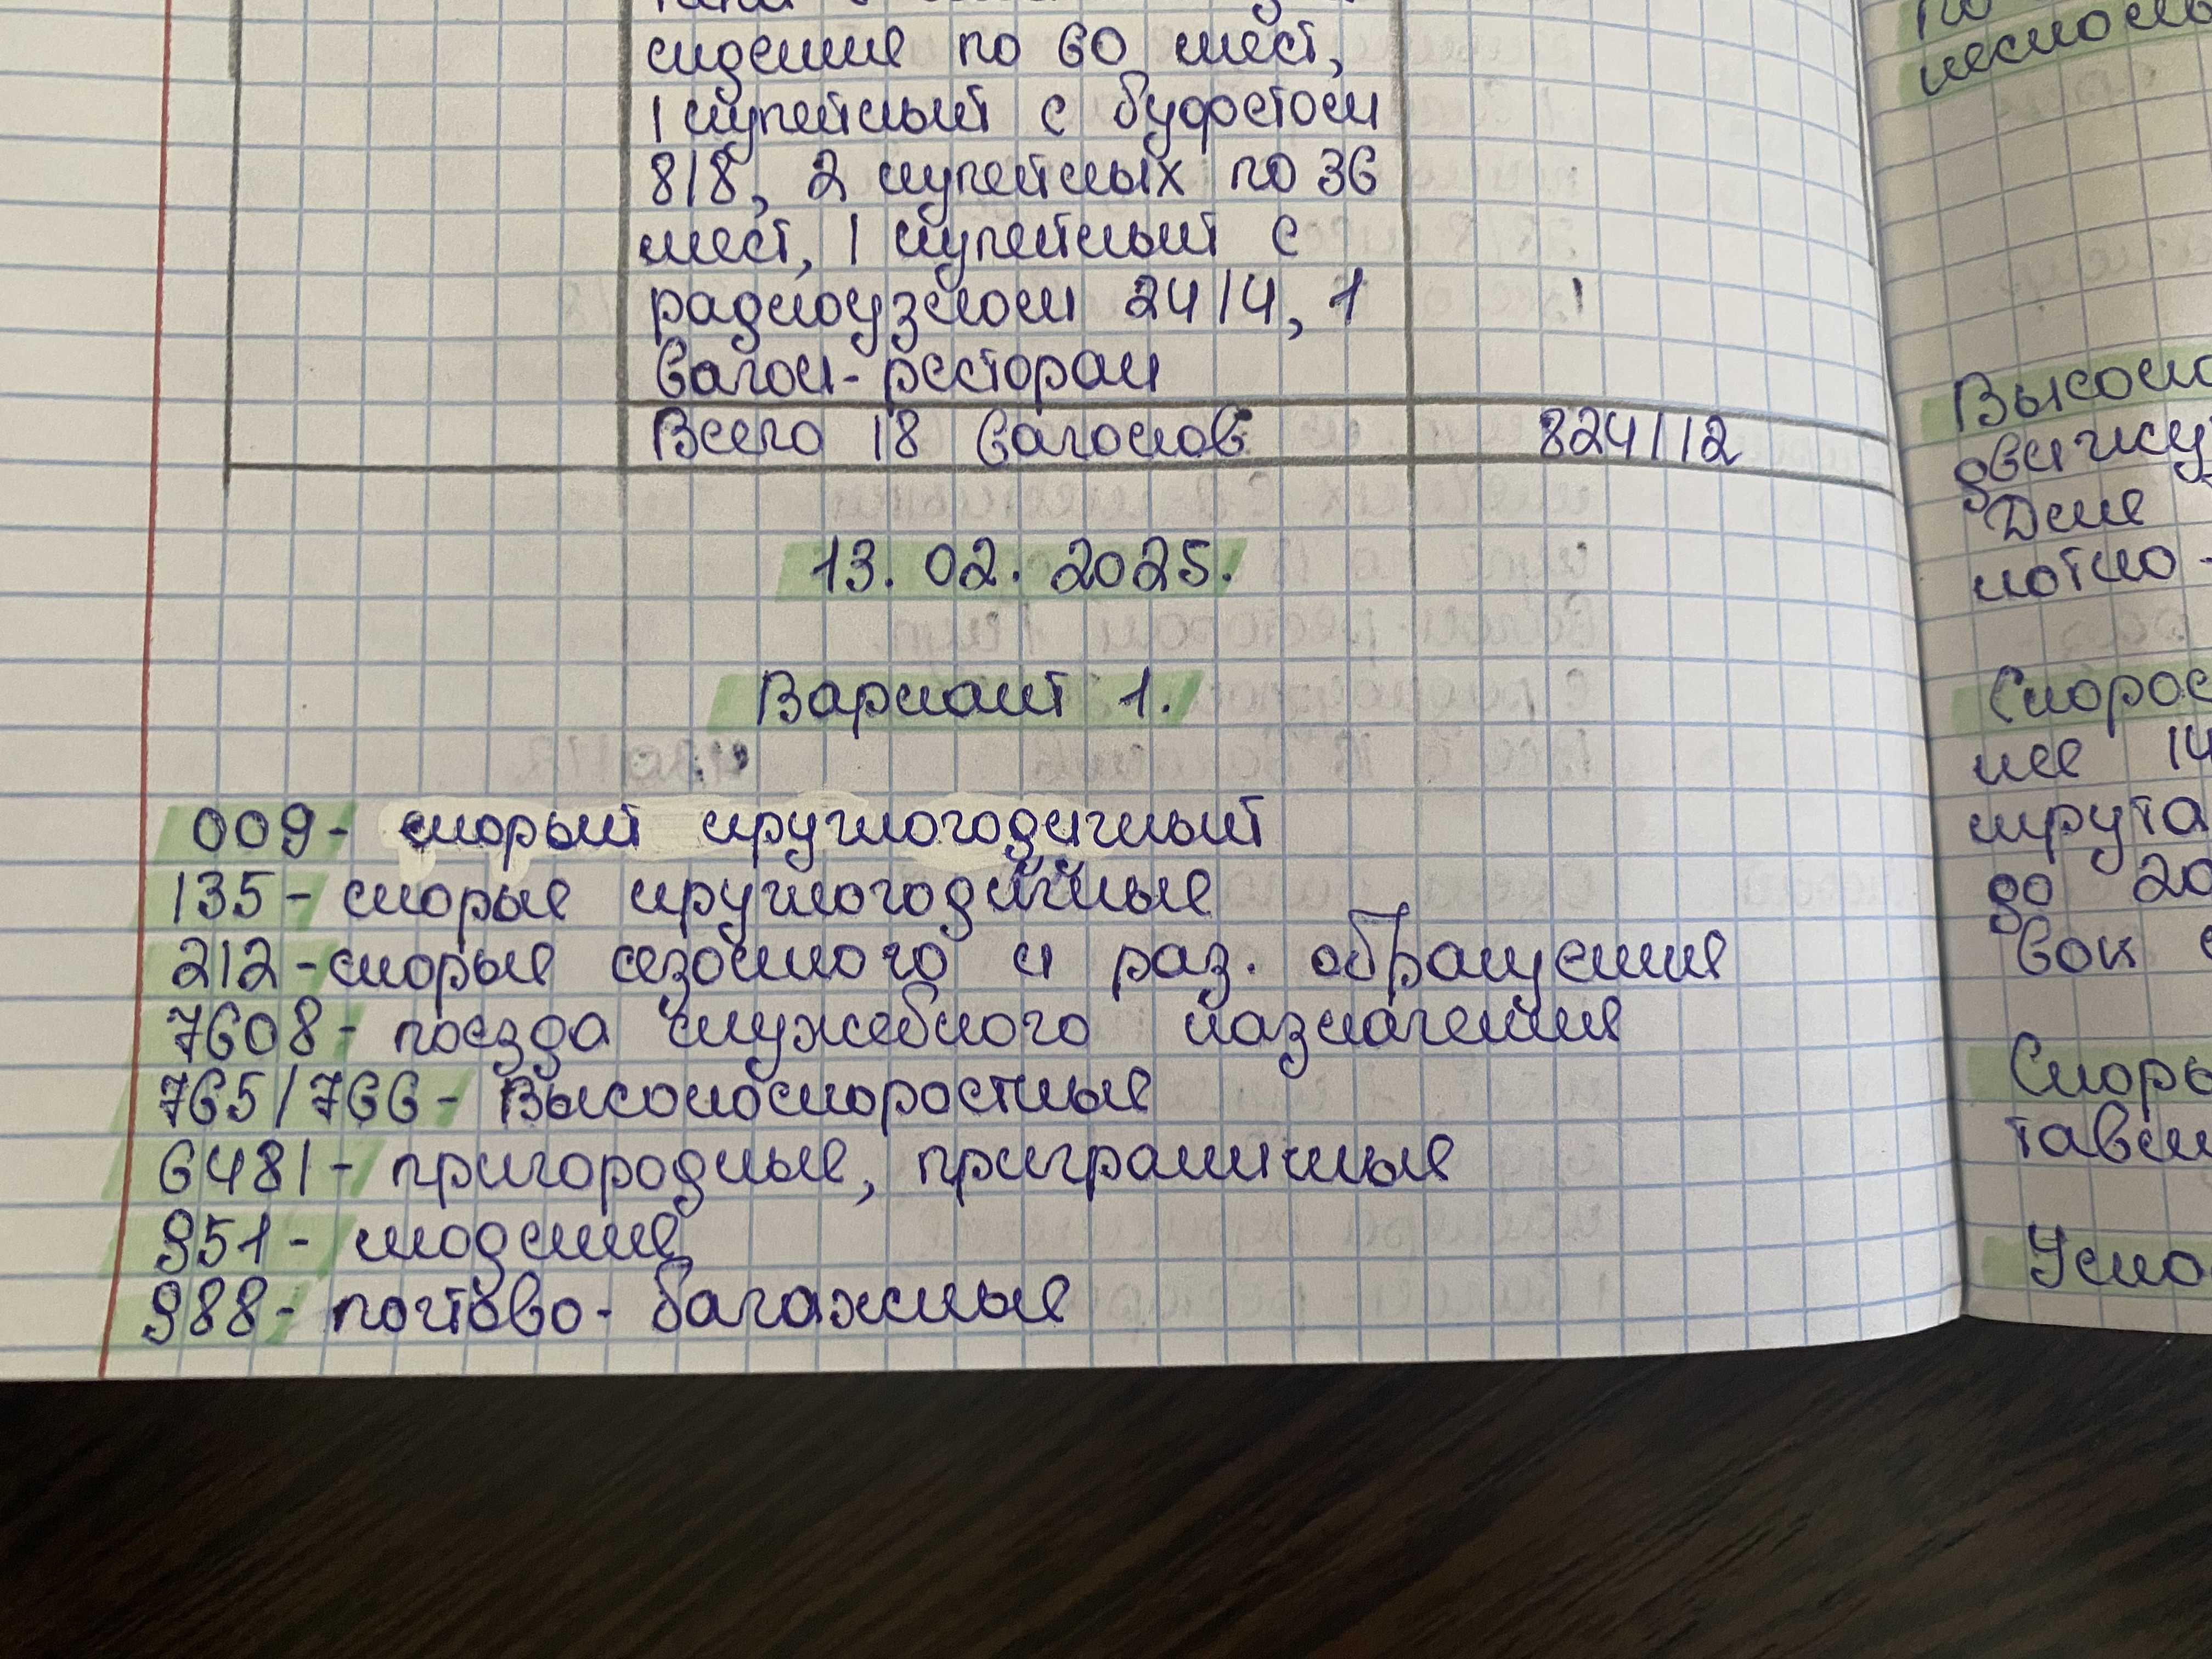 сидения по 60 мест,
1 купейный с буфетом
8/8, 2 купейных по 36
мест, 1 купейный с
радиоузлом 24/4, 1
вагон-ресторан
Всего 18 вагонов 824/12
13. 02. 2025.
Вариант 1.
009- скорый круглогодичный
135- скорые круглогодичные
212- скорые сезонного и раз. обращения
7608- поезда служебного назначения
765/766- Высокоскоростные
6481- пригородные, приграничные
951- людские
988- почтово- багажные
Высоко
движу
Дне
лотно-
Скорос
нее 14
шрута
до 20
вок с
Скоры
тавли
Уско